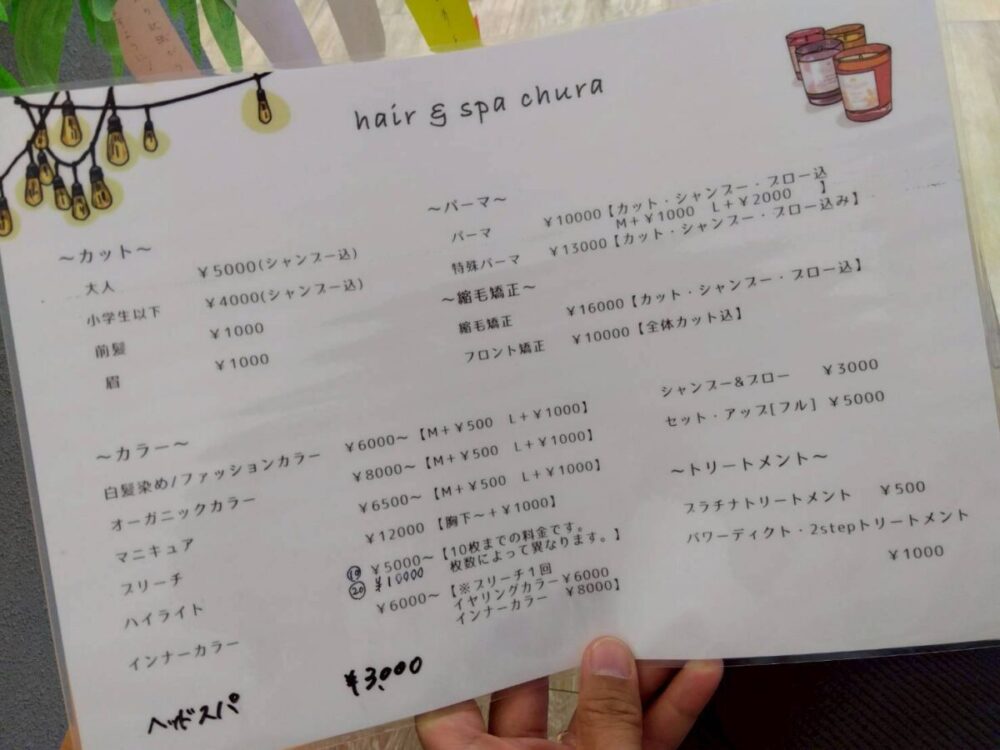 hair & spa chura
～カット～
大人 ￥5000(シャンプー込)
小学生以下 ￥4000(シャンプー込)
前髪 ￥1000
眉 ￥1000
～カラー～
白髪染め/ファッションカラー ￥6000～【M+￥500 L+￥1000】
オーガニックカラー ￥8000～【M+￥500 L+￥1000】
マニキュア ￥6500～【M+￥500 L+￥1000】
ブリーチ ￥12000【胸下～+￥1000】
ハイライト ⑩ ￥5000～【10枚までの料金です。
⑳ ￥10000 枚数によって異なります。】
インナーカラー ￥6000～【※ブリーチ1回
イヤリングカラー￥6000
インナーカラー ￥8000】
ヘッドスパ ￥3,000
～パーマ～
パーマ ￥10000【カット・シャンプー・ブロー込
M+￥1000 L+￥2000 】
特殊パーマ ￥13000【カット・シャンプー・ブロー込み】
～縮毛矯正～
縮毛矯正 ￥16000【カット・シャンプー・ブロー込】
フロント矯正 ￥10000【全体カット込】
シャンプー&ブロー ￥3000
セット・アップ[フル] ￥5000
～トリートメント～
プラチナトリートメント ￥500
パワーディクト・2stepトリートメント
￥1000